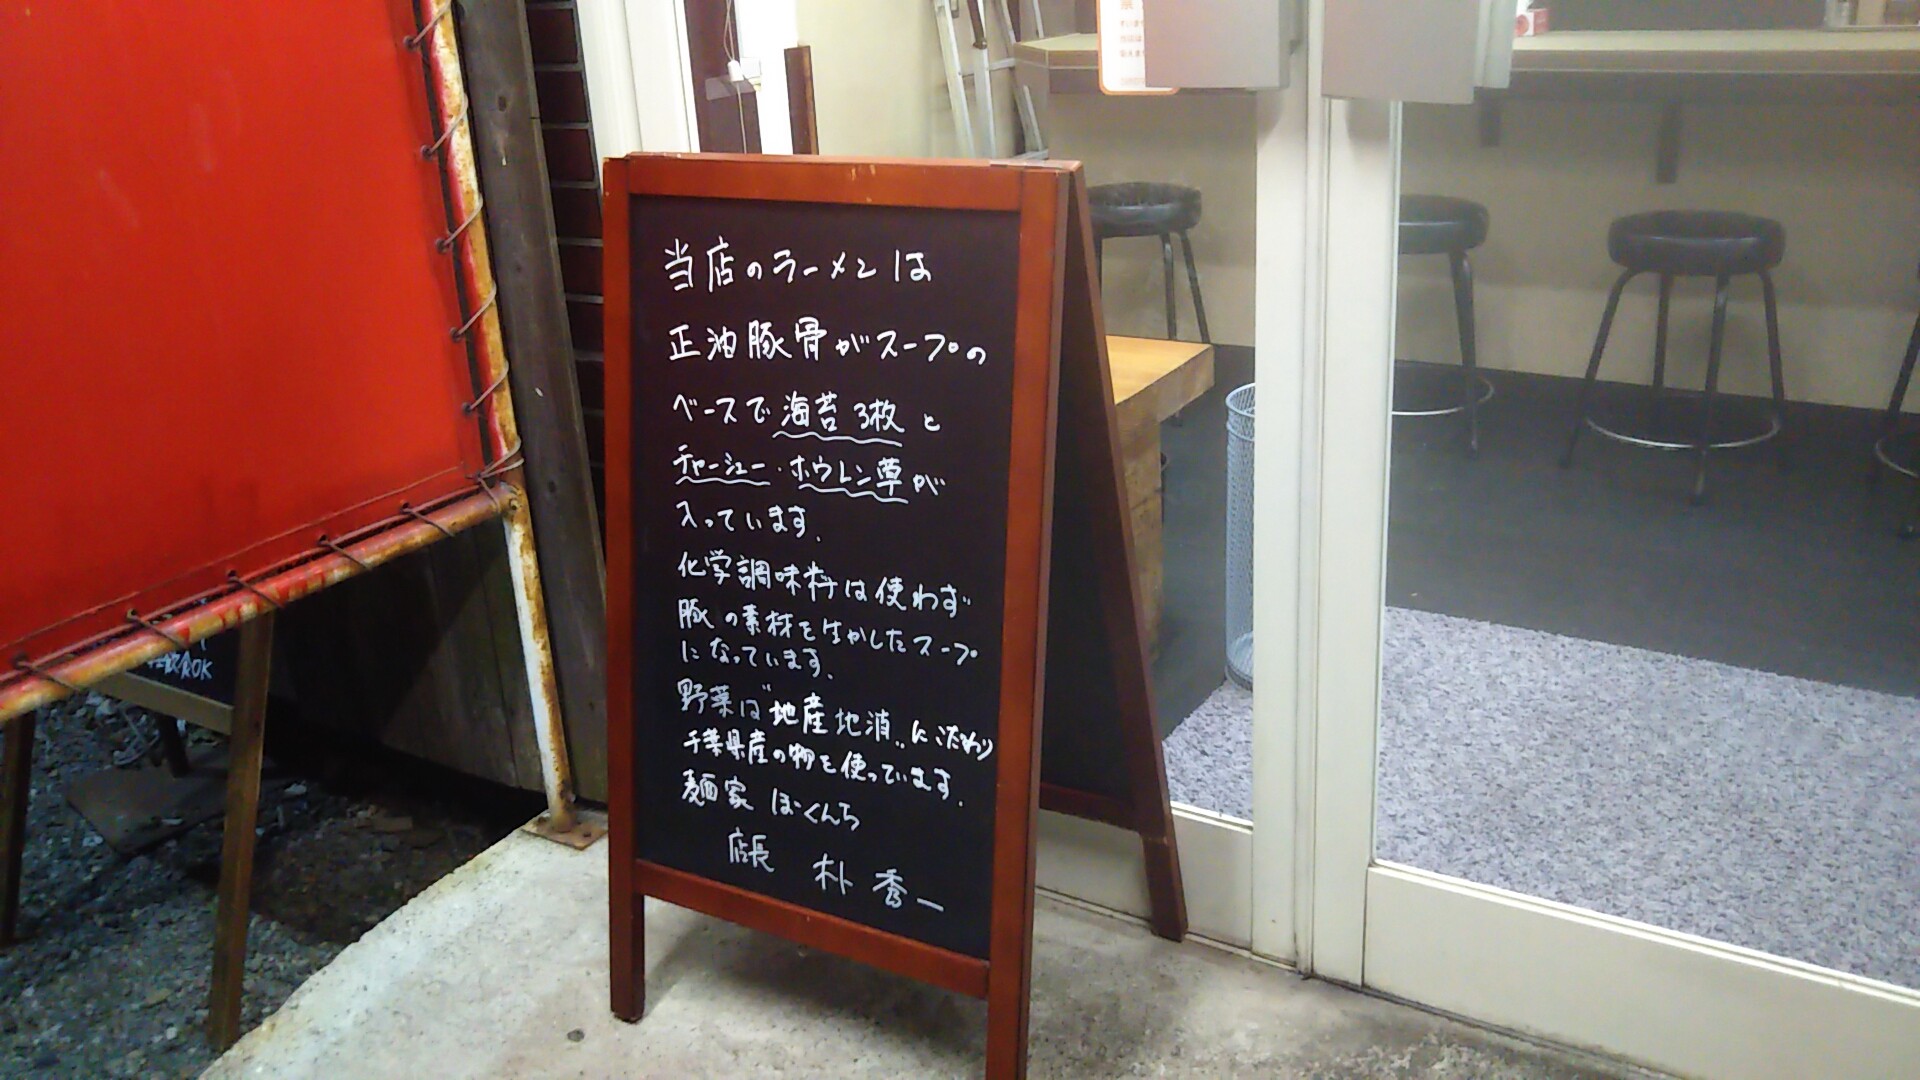 当店のラーメンは
正油豚骨がスープの
ベースで海苔3枚と
チャーシュー・ホウレン草が
入っています.
化学調味料は使わず
豚の素材を生かしたスープ
になっています.
野菜は"地産地消"にこだわり
千葉県産の物を使っています.
麺家 ぼくんち
店長 朴 秀一
飲食OK